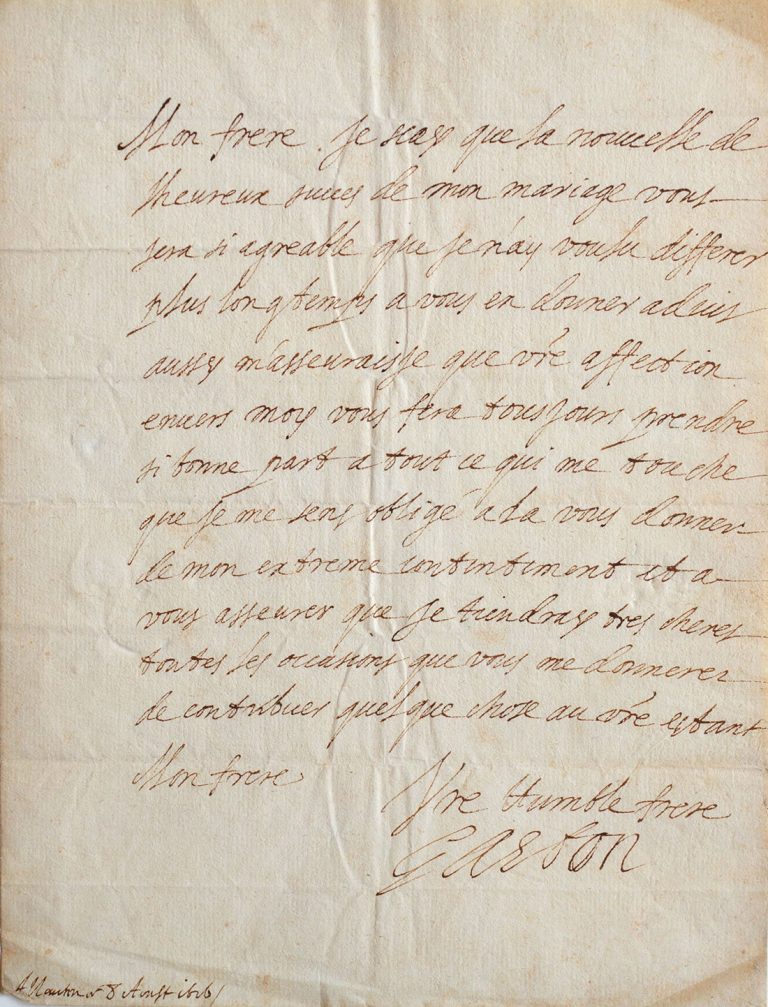 Mon frere. Je scay que la nouuelle de
lheureux succes de mon mariage vous
sera si agreable que Je n'ay voulu differer
plus longtemps a vous en donner aduis
aussy m'asseuraisje que vre affection
enuers moy vous fera tousjours prendre
si bonne part a tout ce qui me touche
que Je me sens obligé a la vous donner
de mon extreme contentement et a
vous asseurer que Je tiendray tres cheres
toutes les occasions que vous me donnerez
de contribuer quelque chose au vre estant
Mon frere
Vre humble frere
Gaston
A 8 Aoust 1626